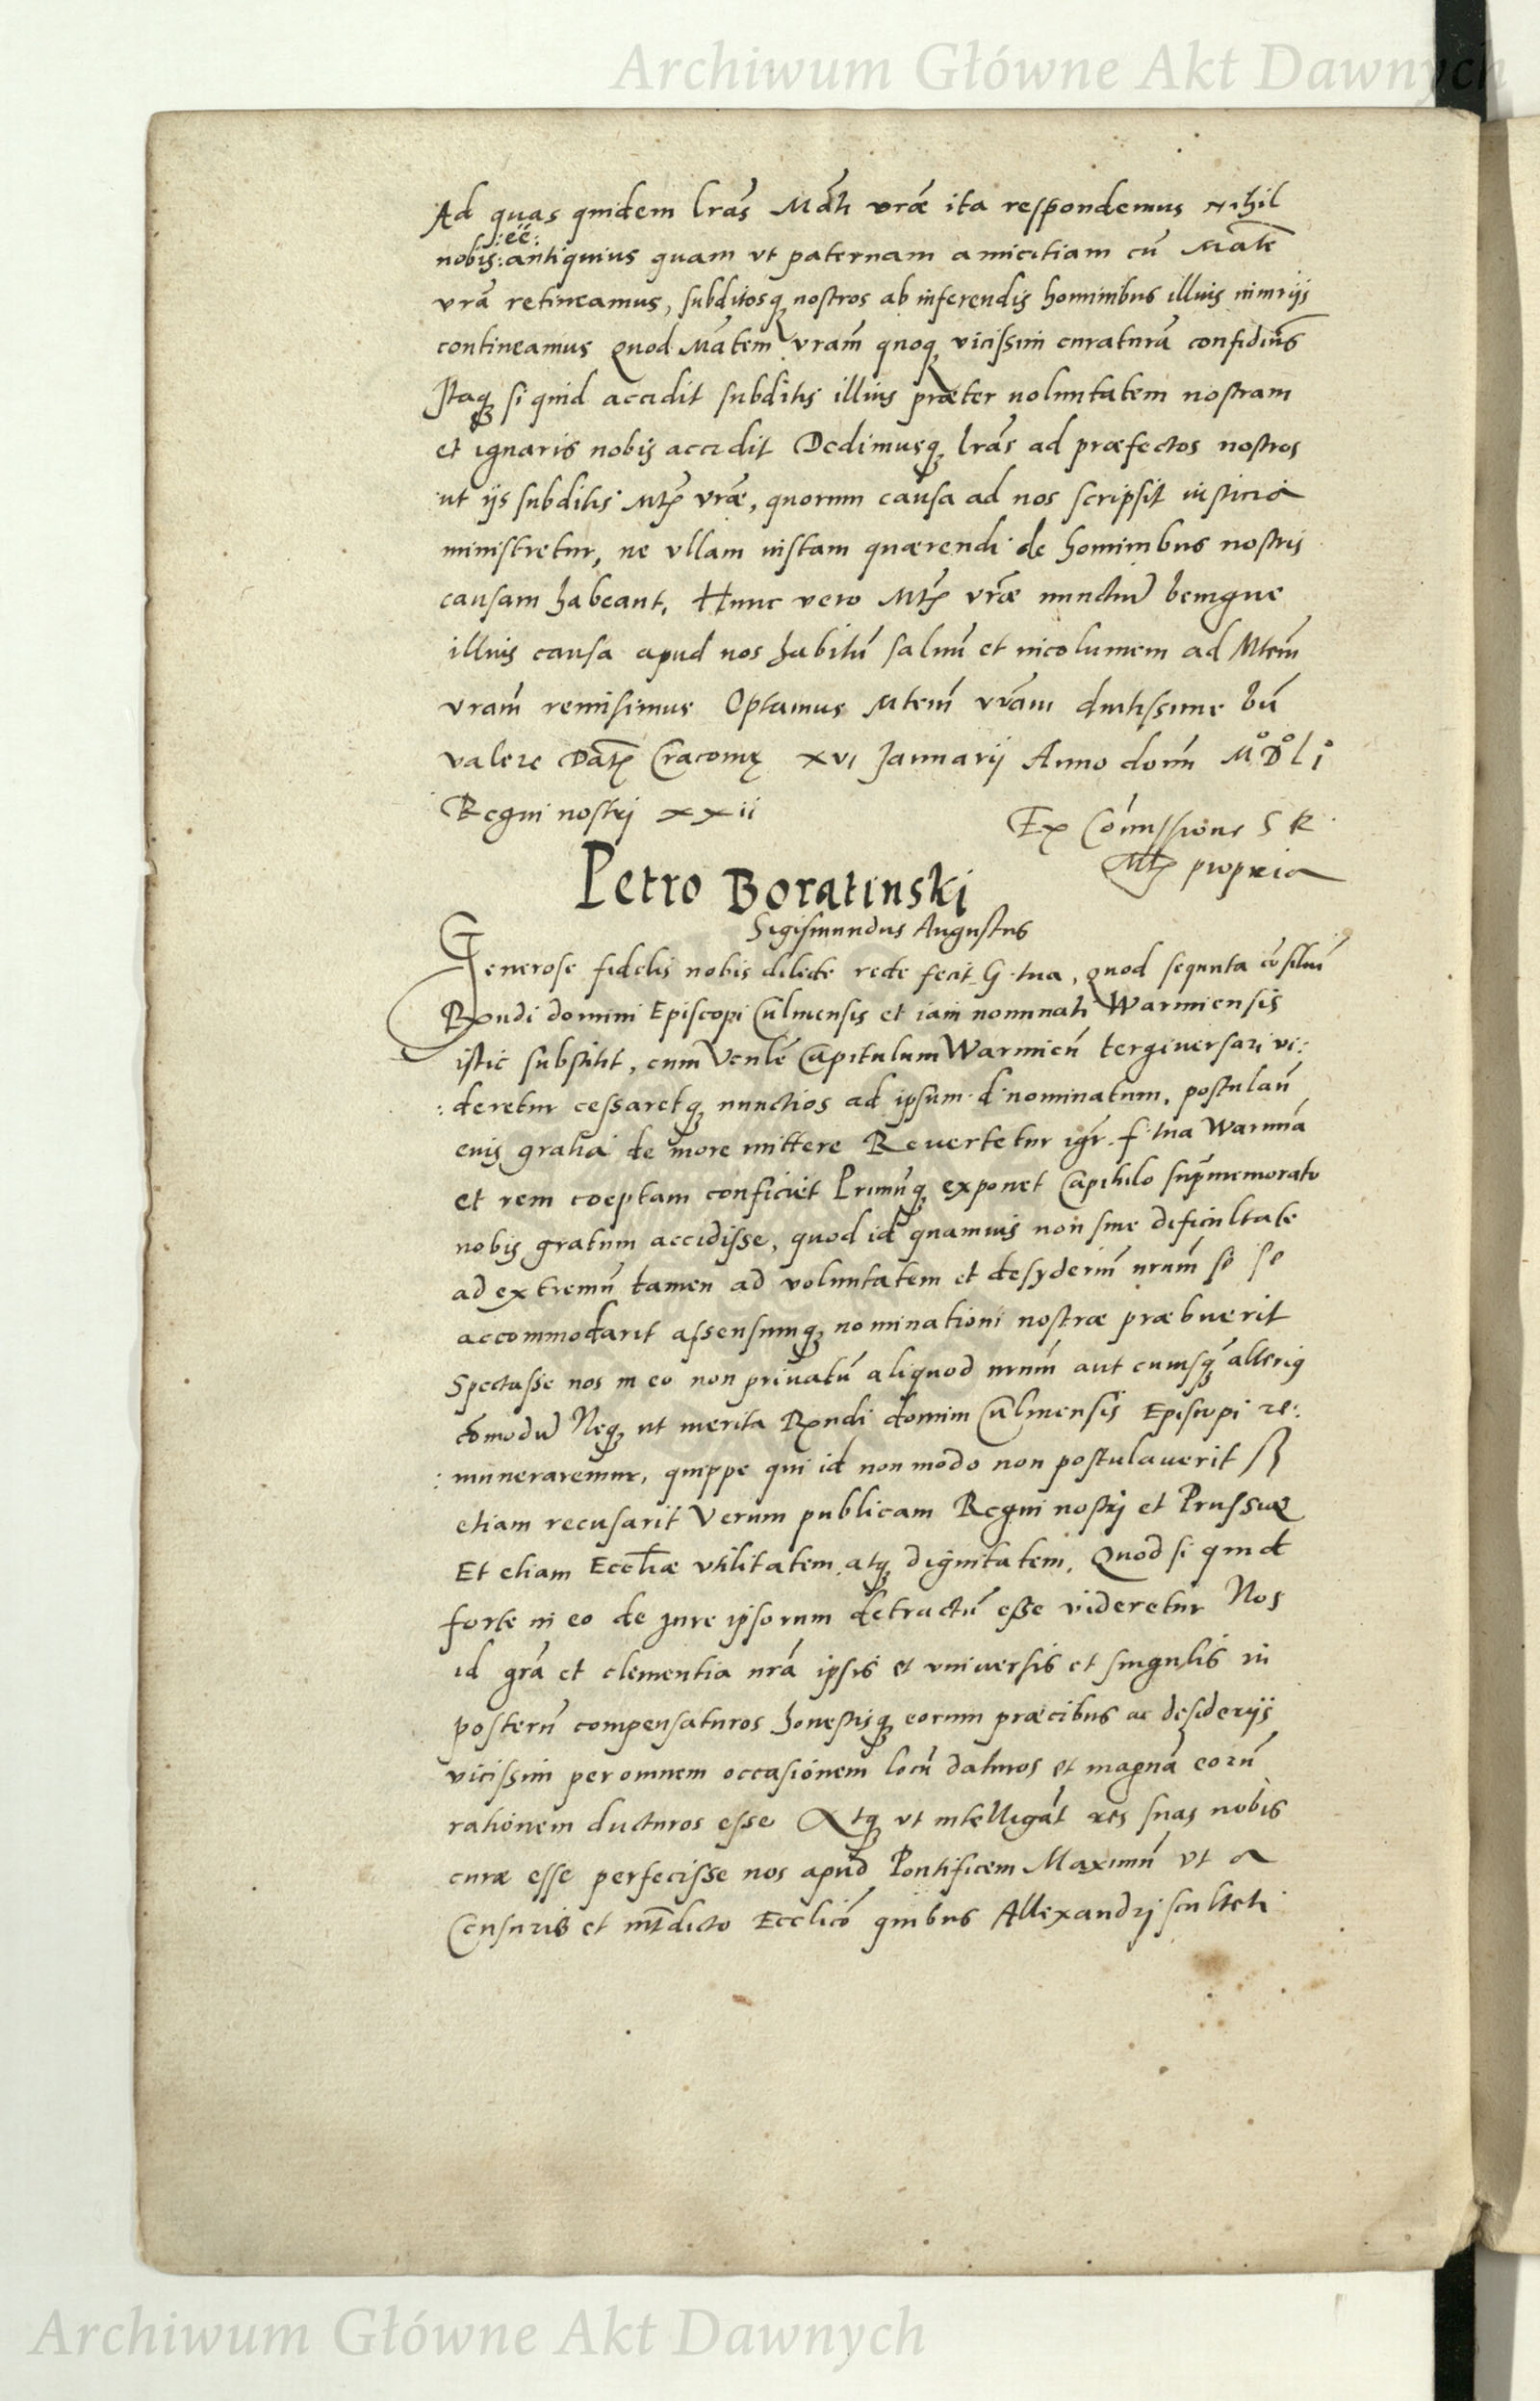 Archiwum Główne Akt Dawnych
Ad quas quidem lrãs Mãti vrãe ita respondemus Nihil
:eẽ:
nobis: antiquius quam vt paternam amicitiam cũ Mãte
vrã retineamus, subditosq; nostros ab inferendis hominibus illius iniuriis
contineamus Quod Mãtem vram̃ quoq; vicissim curaturã confidim̃s
Itaq; si quid accidit subditis illius præter voluntatem nostram
et ignaris nobis accidit Dedimusq; lrãs ad præfectos nostros
ut ijs subditis Mtis vrãe, quorum causa ad nos scripsit iusticia
ministretur, ne vllam iustam quærendi de hominibus nostris
causam habeant. Hunc vero Mtis vrãe nunctiũ benigne
illius causa apud nos habitũ saluũ et incolumem ad Mtem̃
vram̃ remisimus Optamus Mtem̃ vrãm diutissime bñ
valere Datˀ Cracovię xvi Januarij Anno domĩ M° D° l i°
Regni nostrj xxii
Ex Com̃issione S R
Mtis propria
Petro Boratinski
Sigismundus Augustus
Generose fidelis nobis dilecte recte fecit G. tua, Quod sequuta cõsiliũ
Rx̃ndi domini Episcopi Culmensis et iam nominati Warmiensis
istic substitit, cum Venlẽ Capitulum Warmieñ tergiversari vi:
:deretur cessaretq; nunctios ad ipsum d. nominatum, postulañ
eius gratia de more mittere Revertetur igr̃. f. tua Warmiã
et rem coeptam conficiet Primũq; exponet Capitulo sup̃memorato
nobis gratum accidisse, quod id quamuis non sine dificultate
ad extremũ tamen ad voluntatem et desyderiũ nrum̃ se se
accommodarit assensumq; nominationi nostræ præbuerit
Spectasse nos in eo non privatũ aliquod nrum̃ aut cuiusq̃; alterius
cõmodũ Neq; ut merita Rx̃ndi domini Culmensis Episcopi re:
:muneraremur, quippe qui id non modo non postulaverit sz
etiam recusarit Verum publicam Regni nostrj et Prussiæ
Et etiam Eccliæ vtilitatem atq; dignitatem. Quod si quid
forte in eo de jure ipsorum detractũ esse videretur Nos
id grã et clementia nrã ipsis et vniversis et singulis in
posterũ compensaturos honestisq; eorum præcibus ac desiderijs
vicissim per omnem occasionem locũ daturos et magnã eorũ
rationem ducturos esse Atq; vt intelligãt res suas nobis
curæ esse perfecisse nos apud Pontificem Maximũ vt a
Censuris et intdicto Ecclicõ quibus Allexandrj sculteti
Archiwum Główne Akt Dawnych